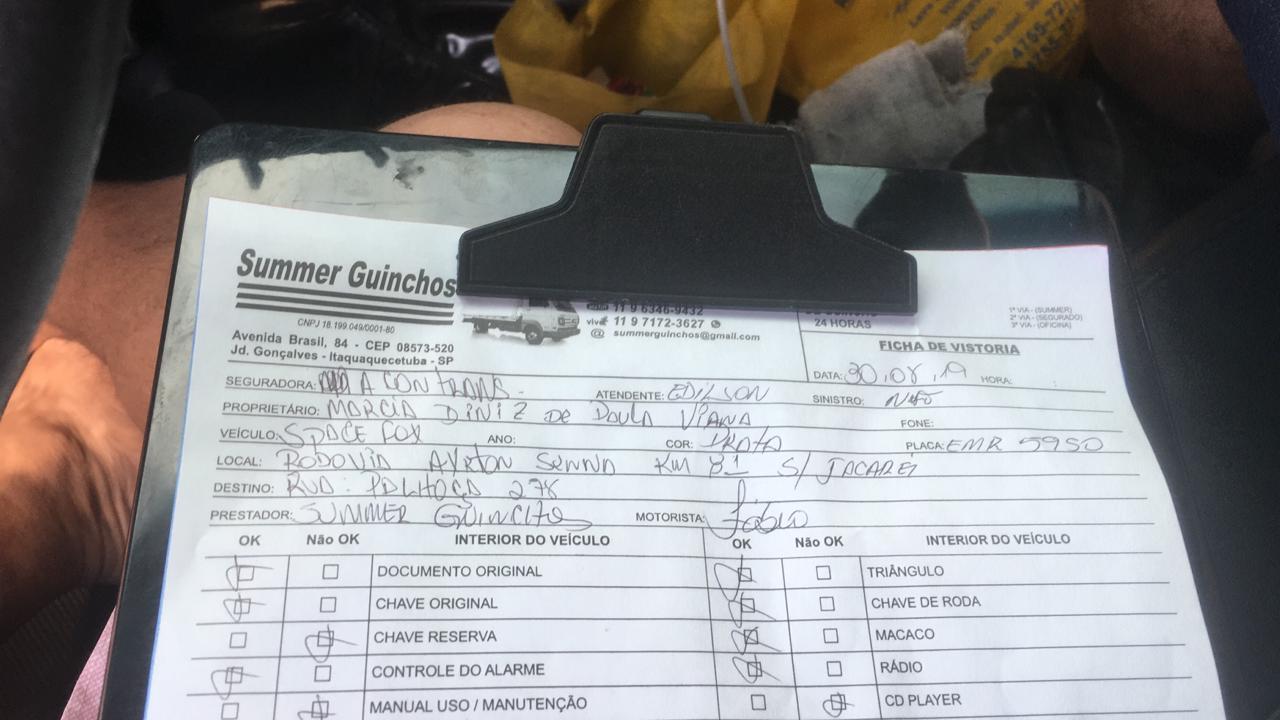 4765-72
Summer Guinchos
CNPJ 18.199.049/0001-80
Avenida Brasil, 84 - CEP 08573-520
Jd. Gonçalves - Itaquaquecetuba - SP
11 9 6346-9432
vivo 11 9 7172-3627
@ summerguinchos@gmail.com
DE GUINCHO
24 HORAS
1ª VIA - (SUMMER)
2ª VIA - (SEGURADO)
3ª VIA - (OFICINA)
FICHA DE VISTORIA
DATA: 30.08.19 HORA: :
SEGURADORA: A CONTRANS - ATENDENTE: EDILSON SINISTRO:
PROPRIETÁRIO: MARCIA DINIZ DE PAULA VIANA FONE:
VEÍCULO: SPACE FOX ANO: COR: PRATA PLACA: EMR 5950
LOCAL: RODOVIA AYRTON SENNA KM 81 S/ JACAREI
DESTINO: RUA: PALHOÇA 278
PRESTADOR: SUMMER GUINCHOS MOTORISTA: Fabio
OK Não OK INTERIOR DO VEÍCULO OK Não OK INTERIOR DO VEÍCULO
DOCUMENTO ORIGINAL TRIÂNGULO
CHAVE ORIGINAL CHAVE DE RODA
CHAVE RESERVA MACACO
CONTROLE DO ALARME RÁDIO
MANUAL USO / MANUTENÇÃO CD PLAYER